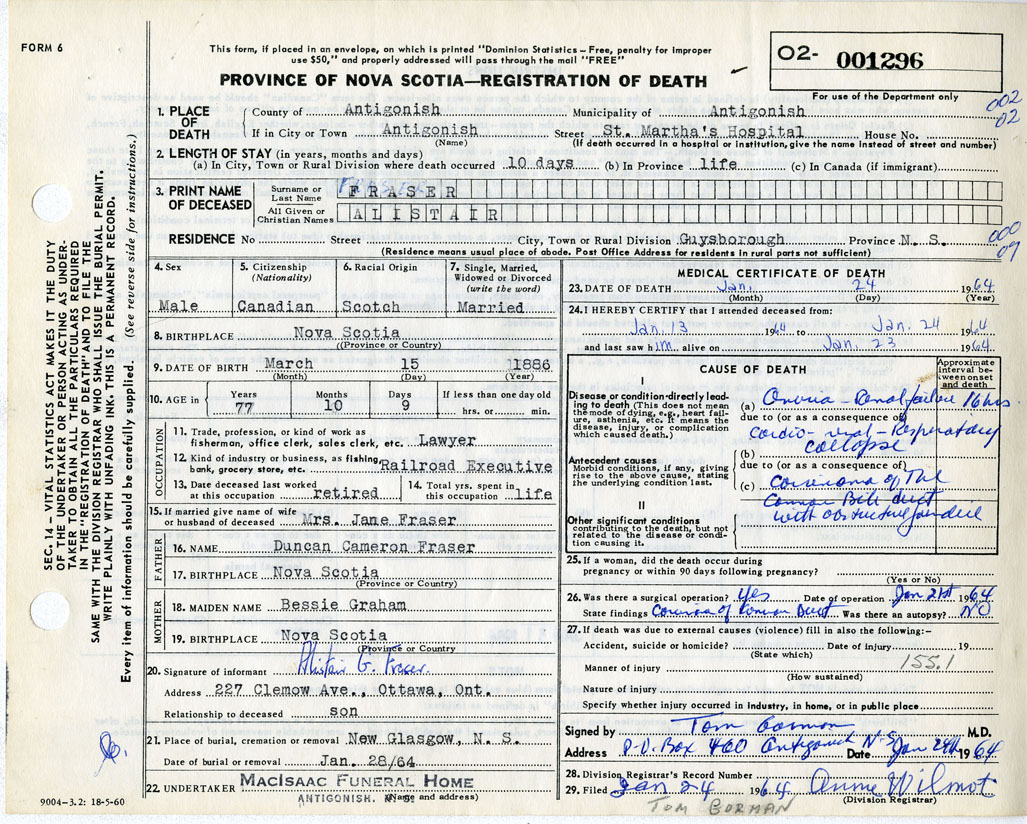 FORM 6
This form, if placed in an envelope, on which is printed "Dominion Statistics – Free, penalty for improper
use $50," and properly addressed will pass through the mail "FREE"
PROVINCE OF NOVA SCOTIA—REGISTRATION OF DEATH
O2- 001296
For use of the Department only
002
02
1. PLACE OF DEATH
County of Antigonish Municipality of Antigonish
If in City or Town Antigonish Street St. Martha's Hospital House No.
(Name) (If death occurred in a hospital or institution, give the name instead of street and number)
2. LENGTH OF STAY (in years, months and days)
(a) In City, Town or Rural Division where death occurred 10 days (b) In Province life (c) In Canada (if immigrant)
3. PRINT NAME OF DECEASED
Surname or Last Name FRASER
All Given or Christian Names ALISTAIR
000
09
RESIDENCE No Street City, Town or Rural Division Guysborough Province N. S.
(Residence means usual place of abode. Post Office Address for residents in rural parts not sufficient)
4. Sex
Male
5. Citizenship
(Nationality)
Canadian
6. Racial Origin
Scotch
7. Single, Married,
Widowed or Divorced
(write the word)
Married
8. BIRTHPLACE Nova Scotia
(Province or Country)
9. DATE OF BIRTH March 15 1886
(Month) (Day) (Year)
10. AGE in
Years Months Days If less than one day
77 10 9 hrs. or min.
OCCUPATION
11. Trade, profession, or kind of work as
fisherman, office clerk, sales clerk, etc. Lawyer
12. Kind of industry or business, as fishing,
bank, grocery store, etc. Railroad Executive
13. Date deceased last worked
at this occupation retired
14. Total yrs. spent in
this occupation life
15. If married give name of wife
or husband of deceased Mrs. Jane Fraser
FATHER
16. NAME Duncan Cameron Fraser
17. BIRTHPLACE Nova Scotia
(Province or Country)
MOTHER
18. MAIDEN NAME Bessie Graham
19. BIRTHPLACE Nova Scotia
(Province or Country)
20. Signature of informant Alistair G. Fraser.
Address 227 Clemow Ave., Ottawa, Ont.
Relationship to deceased son
21. Place of burial, cremation or removal New Glasgow, N. S.
Date of burial or removal Jan. 28/64
22. UNDERTAKER MacIsaac Funeral Home
ANTIGONISH. (Name and address)
9004–3.2: 18-5-60
MEDICAL CERTIFICATE OF DEATH
23. DATE OF DEATH Jan. 24 1964
(Month) (Day) (Year)
24. I HEREBY CERTIFY that I attended deceased from:
Jan. 13 1964 to Jan. 24 1964
and last saw him alive on Jan. 23 1964
CAUSE OF DEATH
Approximate
interval between
onset
and death
I
Disease or condition directly leading
to death (This does not mean
the mode of dying, e.g., heart failure,
asthenia, etc. It means the
disease, injury, or complication
which caused death.)
(a) Anuria – Renal failure 16 hrs
due to (or as a consequence of)
Cardio – renal – Respiratory
collapse
Antecedent causes
Morbid conditions, if any, giving
rise to the above cause, stating
the underlying condition last.
(b)
due to (or as a consequence of)
(c) Carcinoma of The
Common Bile duct
with obstructive jaundice
II
Other significant conditions
contributing to the death, but not
related to the disease or condition
causing it.
25. If a woman, did the death occur during
pregnancy or within 90 days following pregnancy?
(Yes or No)
26. Was there a surgical operation? Yes Date of operation Jan 21st 1964
State findings of Common Duct Was there an autopsy? NO
27. If death was due to external causes (violence) fill in also the following:–
Accident, suicide or homicide? Date of injury 19
(State which)
155.1
Manner of injury
(How sustained)
Nature of injury
Specify whether injury occurred in industry, in home, or in public place
Signed by Tom Gorman M.D.
Address P.O. Box 460 Antigonish N-S Date Jan 24th 1964
28. Division Registrar's Record Number
29. Filed Jan 24 1964 Anne Wilmot
(Division Registrar)
TOM GORMAN
SEC. 14 – VITAL STATISTICS ACT MAKES IT THE DUTY
OF THE UNDERTAKER OR PERSON ACTING AS UNDERTAKER
TO OBTAIN ALL THE PARTICULARS REQUIRED
IN THE "REGISTRATION OF DEATH" AND TO FILE THE
SAME WITH THE DIVISION REGISTRAR WHO SHALL ISSUE THE BURIAL PERMIT.
WRITE PLAINLY WITH UNFADING INK. THIS IS A PERMANENT RECORD.
Every item of information should be carefully supplied. (See reverse side for instructions.)